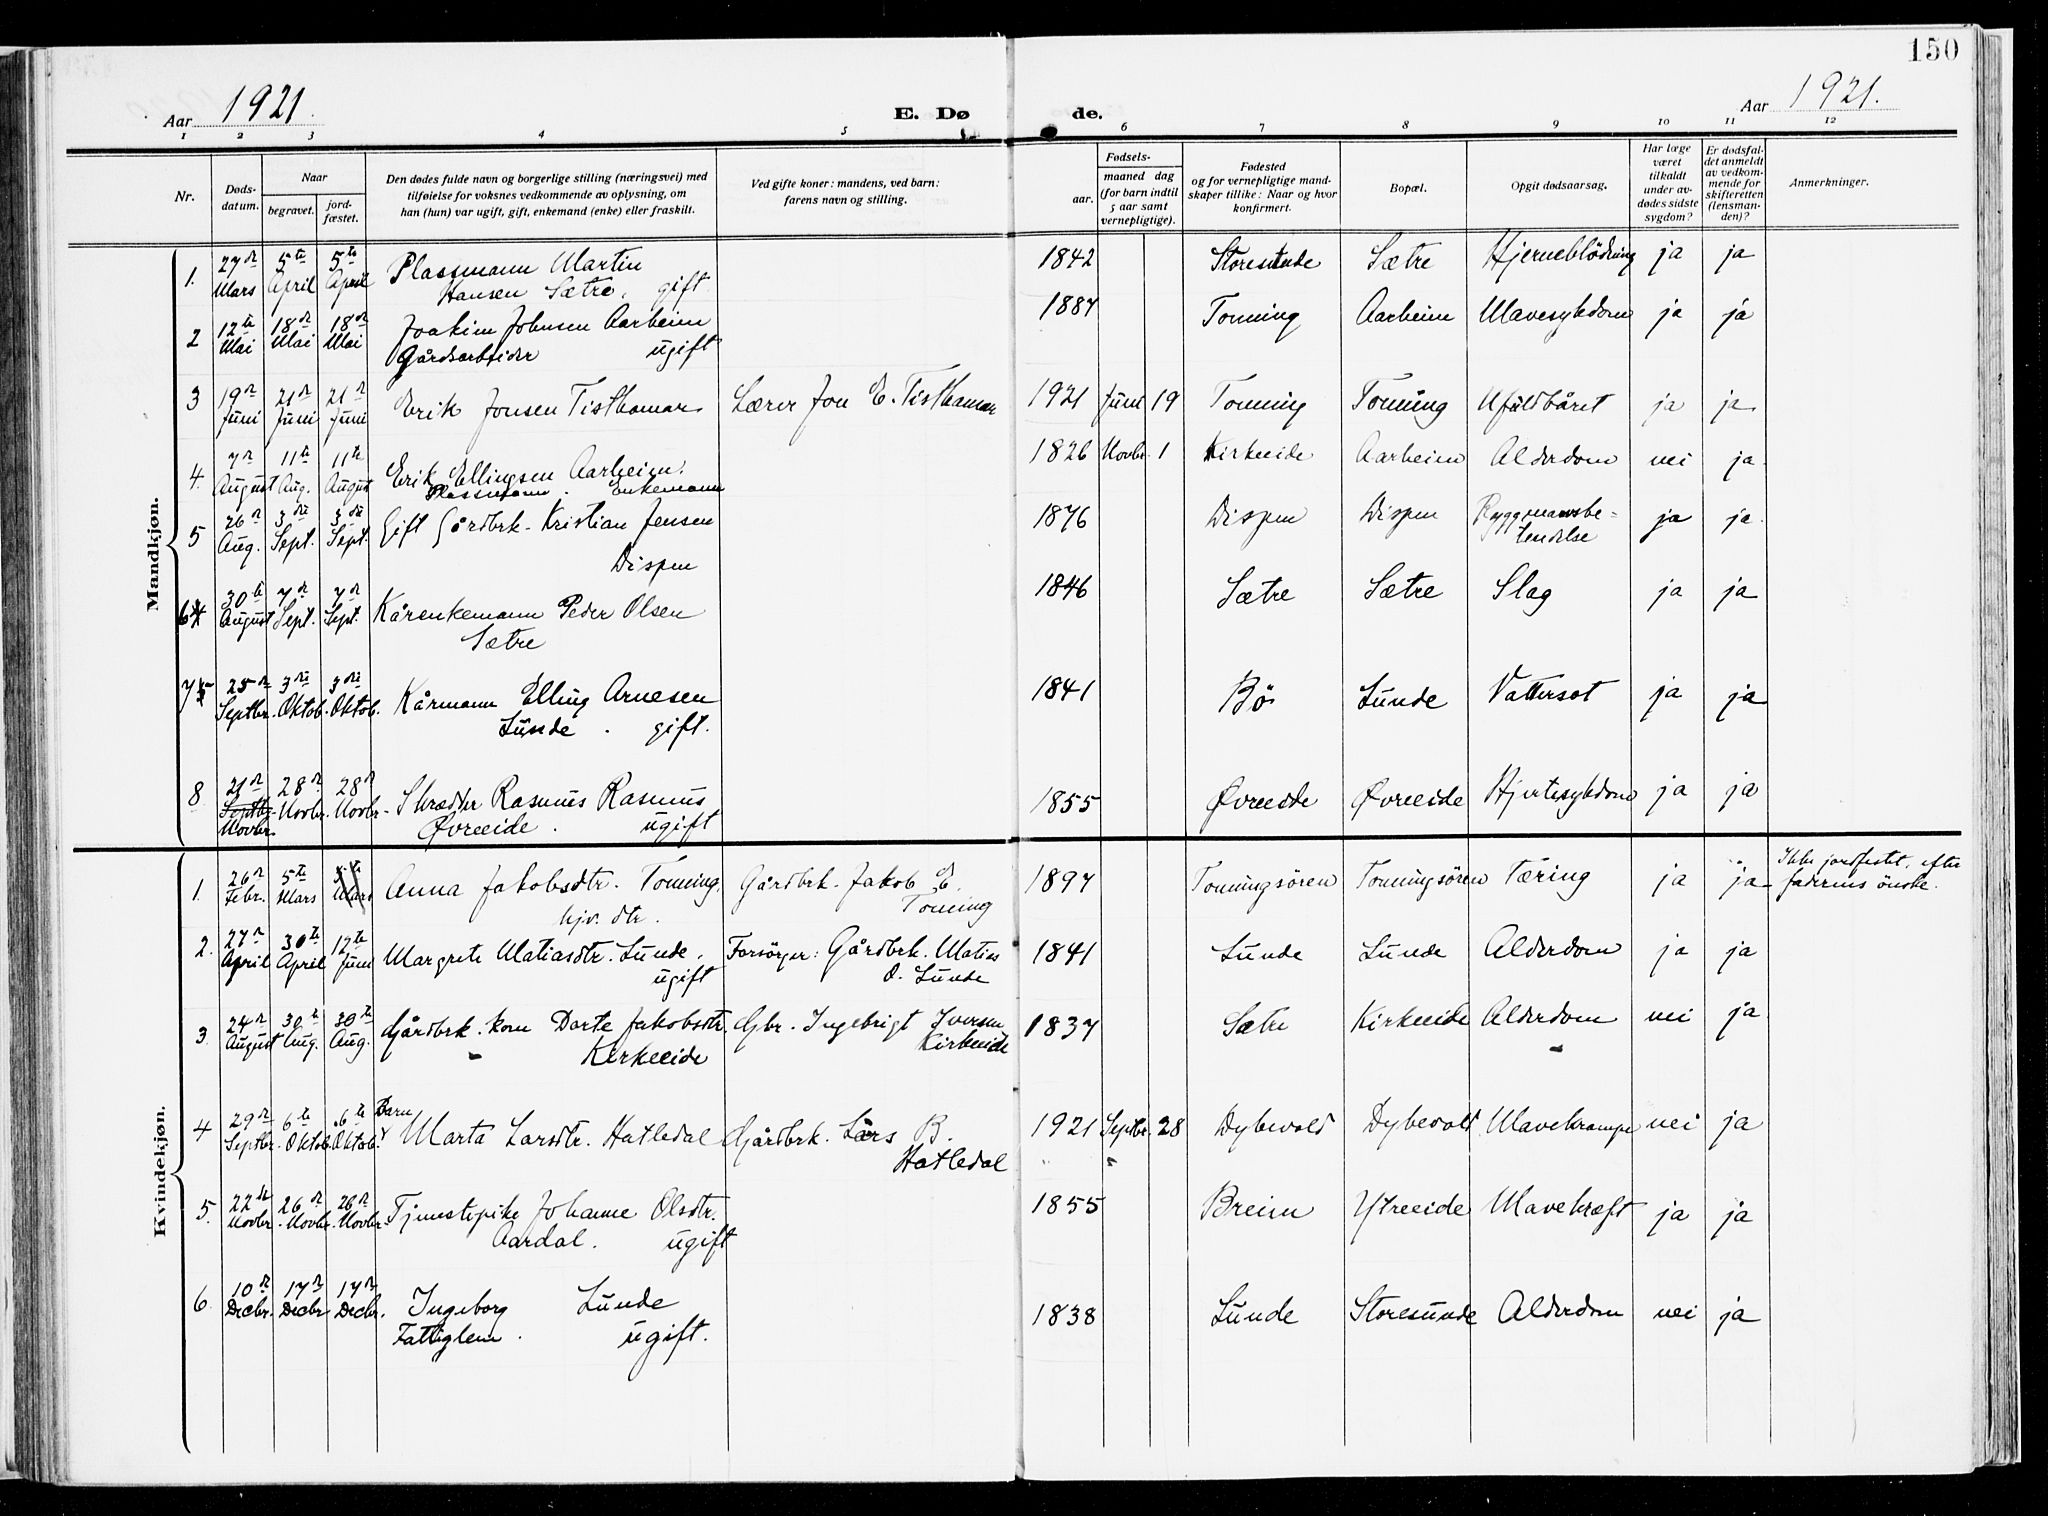 150
Aar 1921.
E. Døde.
Aar 1921.
1 2 3 4 5 6 7 8 9 10 11 12
Nr.
Døds-
datum.
Naar
begravet.
jord-
fæstet.
Den dødes fulde navn og borgerlige stilling (næringsvei) med
tilføielse for voksnes vedkommende av oplysning, om
han (hun) var ugift, gift, enkemand (enke) eller fraskilt.
Ved gifte koner: mandens, ved barn:
farens navn og stilling.
Fødsels-
aar.
maaned dag
(for barn indtil
5 aar samt
vernepligtige).
Fødested
og for vernepligtige mand-
skaper tillike: Naar og hvor
konfirmert.
Bopæl.
Opgit dødsaarsag.
Har læge
været
tilkaldt
under av-
dødes sidste
sygdom?
Er dødsfal-
det anmeldt
av vedkom-
mende for
skifteretten
(lensman-
den)?
Anmerkninger.
Mandkjøn.
1. 27de Mars 5te April 5te April Plassmann Martin 1842 Storesunde Sætre Hjerneblödning ja ja
Hansen Sætre, gift.
2 12te Mai 18de Mai 18de Mai Joakim Johnsen Aarheim 1887 Tonning Aarheim Mavesykdom ja ja
Gårdsarbeider ugift
3 19de Juni 21de Juni 21de Juni Erik Jonsen Tisthamar Lærer Jon E. Tisthamar 1921 Juni 19 Tonning Tonning Ufuldbåret ja ja
4. 7de August 11te Aug. 11te August Erik Ellingsen Aarheim. 1826 Novbr. 1 Kirkeeide Aarheim Alderdom nei ja.
Plassmann. Enkemann
5 26de Aug. 3die Sept. 3die Sept. Gift Gårdbrk. Kristian Jensen 1876 Dispen Dispen Ryggmarvsbe-
tendelse ja ja
Dispen
6 30te August 7de Sept. 7de Sept. Kårenkemann Peder Olsen 1846 Sætre Sætre Slag ja ja
Sætre
7 25de Septbr. 3die Oktob. 3die Oktob. Kårmann Elling Arnesen 1841 Bö Lunde Vattersot ja ja
Lunde. gift.
8 21de Septbr. Novbr. 28de Novbr. 28de Novbr. Skrædder Rasmus Rasmus 1855 Øvreeide Øvreeide Hjertesykdom ja ja
Øvreeide. ugift
Kvindekjøn.
1. 26de Febr. 5te Mars 5te Mars Anna Jakobsdtr. Tonning. Gårdbrk. Jakob E. 1897 Tonningsören Tonningsören Tæring ja ja Ikke jordfestet, efter
hjv. dtr. Tonning faderens önske.
2. 27de April 30te April 12te Juni Margrete Matiasdtr. Lunde. Forsörger: Gårdbrk. Matias 1841 Lunde Lunde Alderdom ja ja
ugift O. Lunde
3. 24de August 30te Aug. 30te Aug. Gårdbrk. kone Dorte Jakobsdtr. Gbr. Ingebrigt Iversen 1837 Sætre Kirkeeide Alderdom nei ja
Kirkeeide Kirkeeide
4 29de Septbr. 6te Oktob. 6te Oktob. Barn Marta Larsdtr. Hatledal Gårdbrk. Lars B. 1921 Septbr. 28 Dybevold Dybevold Mavekrampe nei ja
Hatledal
5. 22de Novbr. 26de Novbr. 26de Novbr. Tjenestepike Johanne Olsdtr. 1855 Breim Ytreeide Mavekræft ja ja
Aardal. ugift
6. 10de Decbr. 17de Decbr 17de Decbr. Ingeborg Lunde 1838 Lunde Storesunde Alderdom nei ja
Fattiglem. ugift.